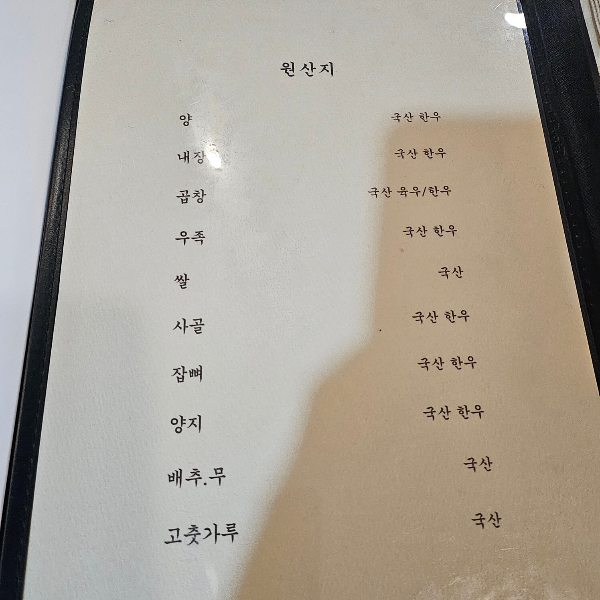 원산지
양 국산 한우
내장 국산 한우
곱창 국산 육우/한우
우족 국산 한우
쌀 국산
사골 국산 한우
잡뼈 국산 한우
양지 국산 한우
배추.무 국산
고춧가루 국산